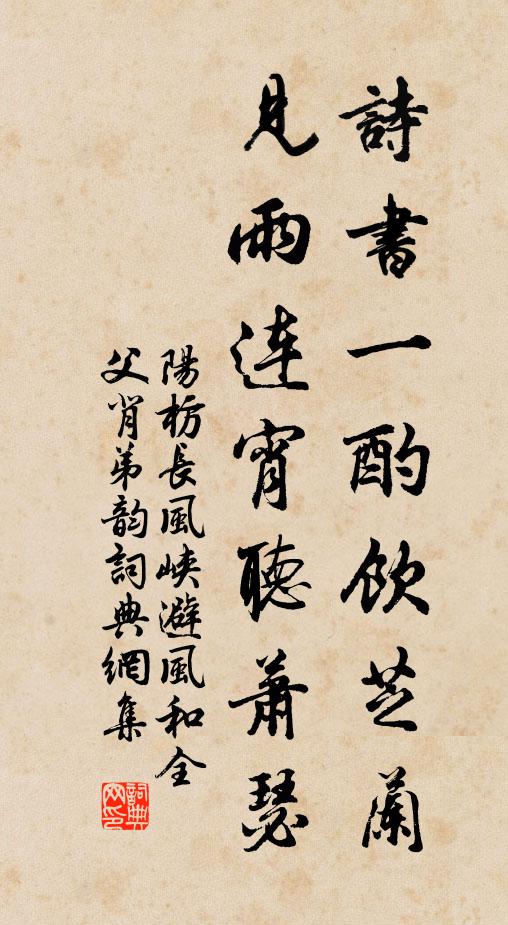 詩書一酌飲芝蘭
見雨連宵聽蕭瑟
陽枋長風峽避風和全
父肖弟韵詞典網集
詞典网印